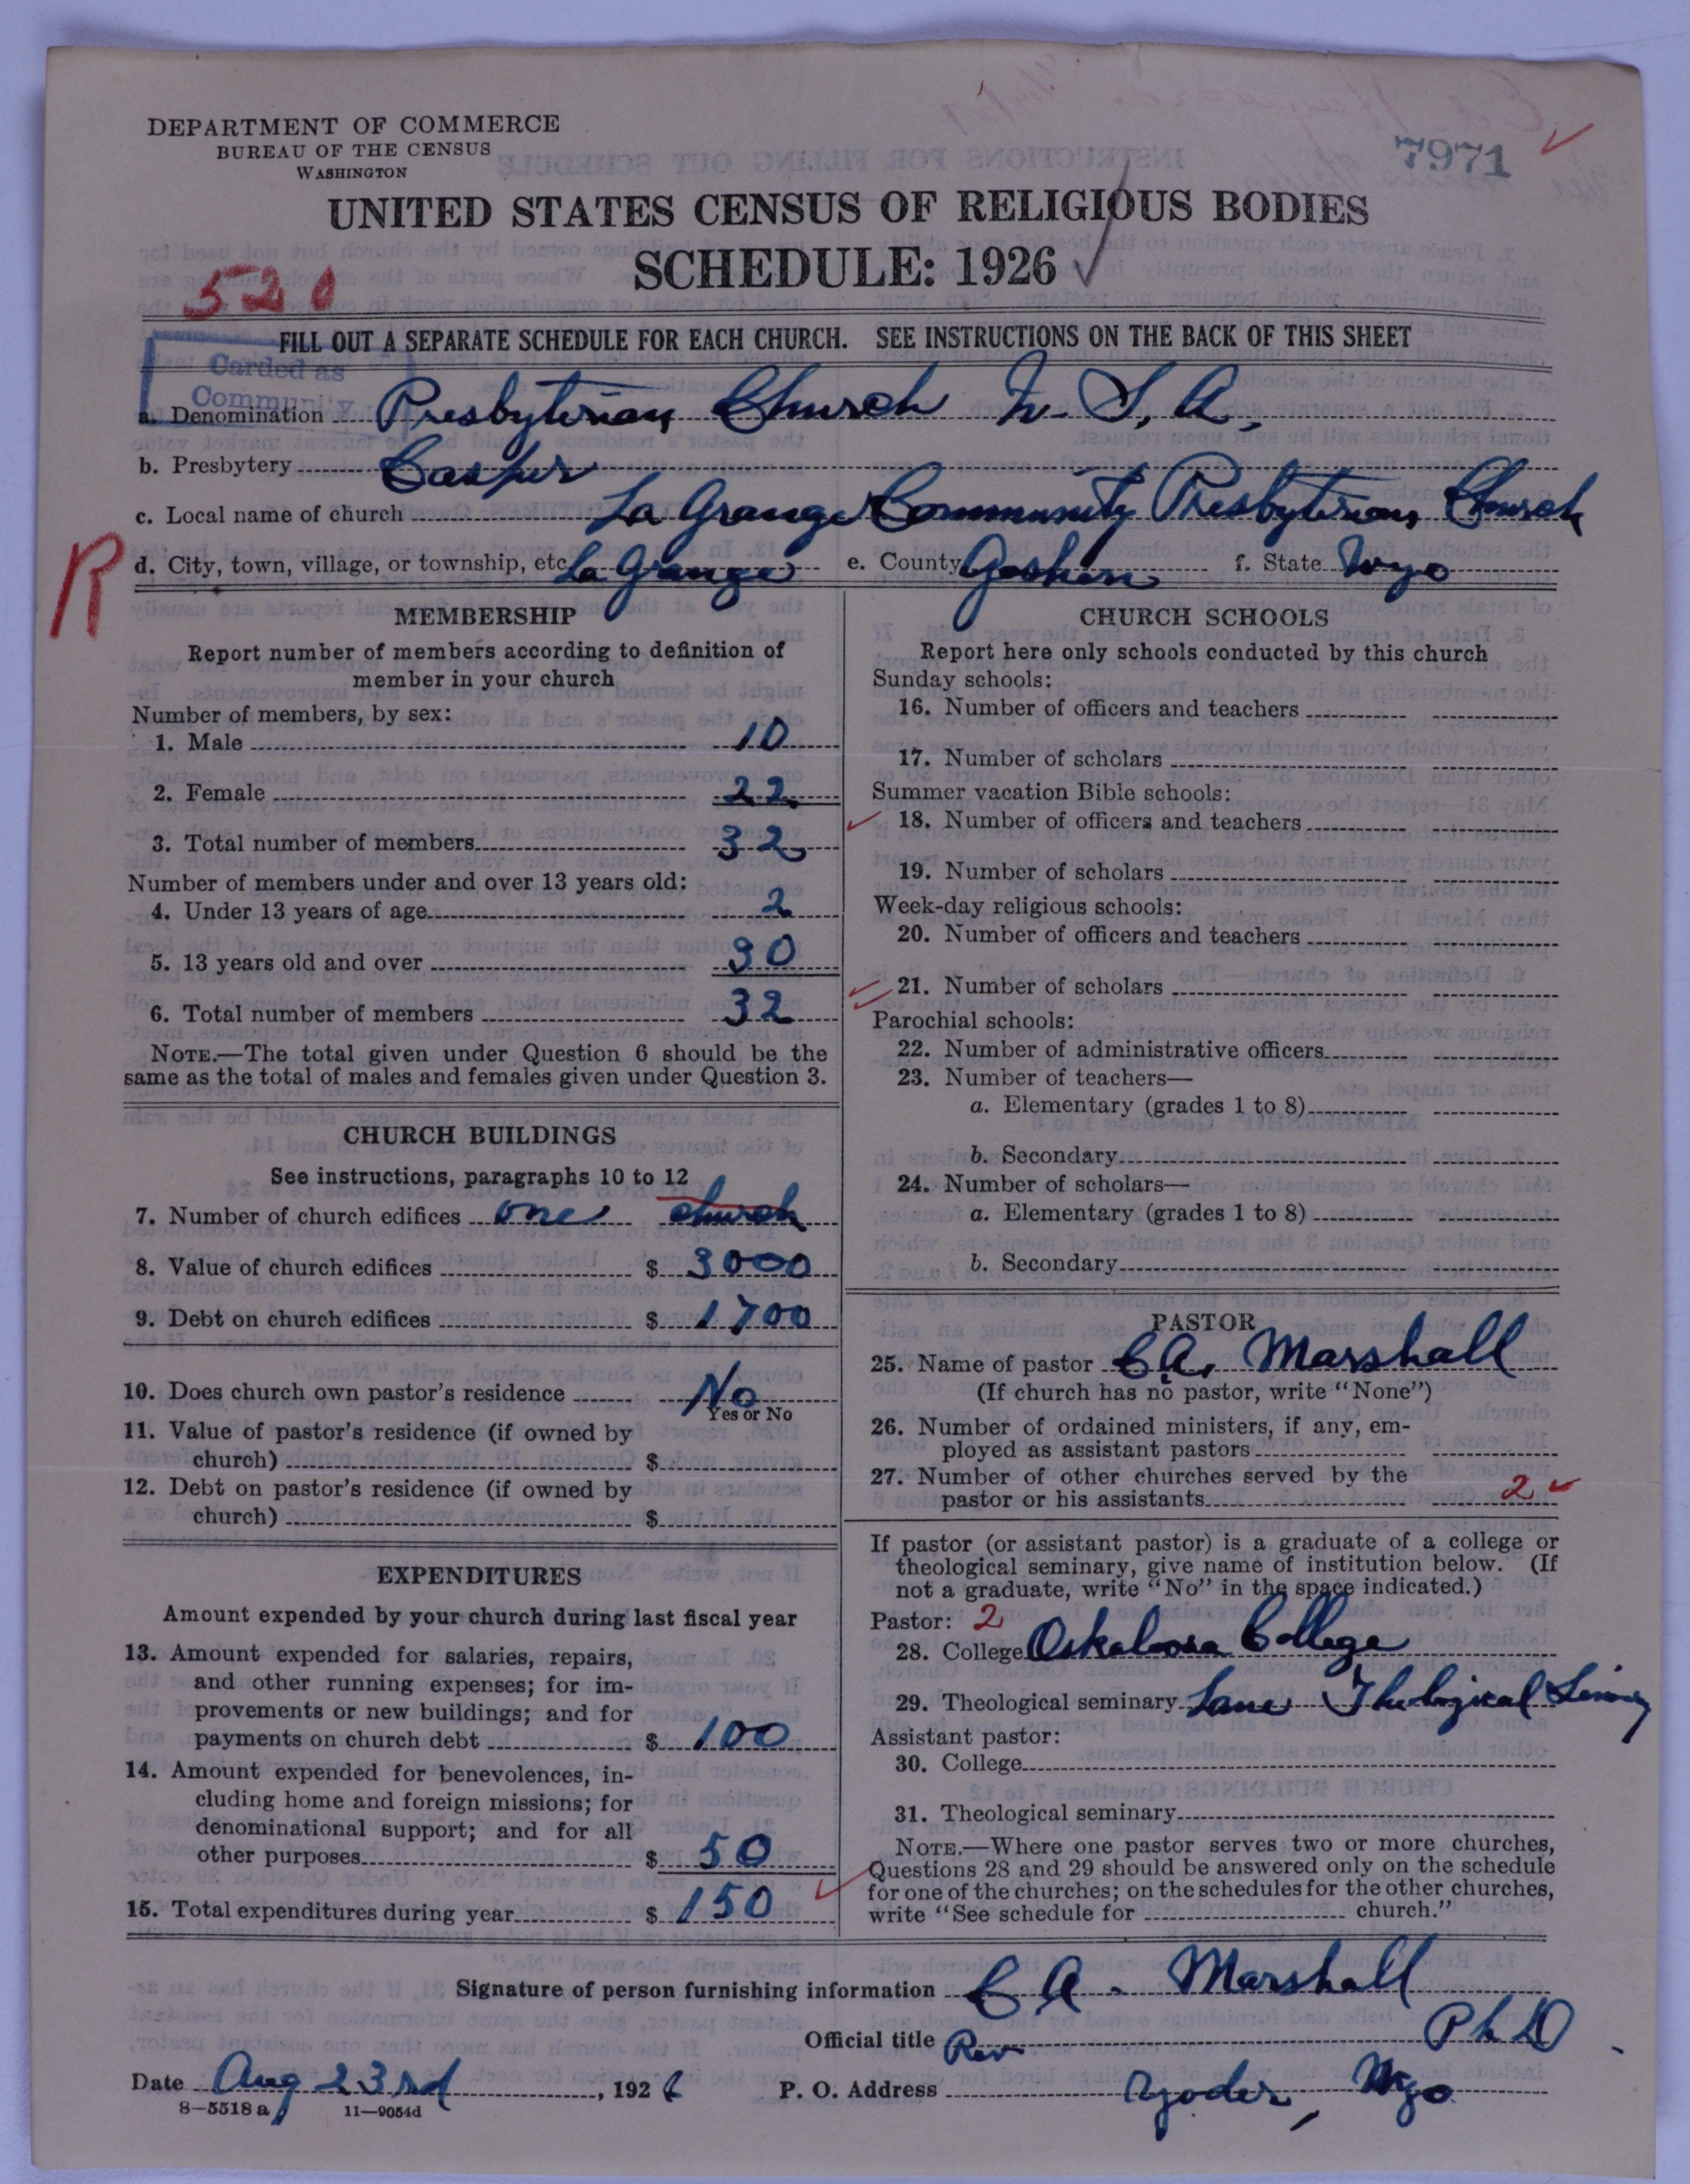 DEPARTMENT OF COMMERCE
BUREAU OF THE CENSUS
WASHINGTON
7971
UNITED STATES CENSUS OF RELIGIOUS BODIES
SCHEDULE: 1926
520
FILL OUT A SEPARATE SCHEDULE FOR EACH CHURCH. SEE INSTRUCTIONS ON THE BACK OF THIS SHEET
Carded as
Community
a. Denomination Presbyterian Church U. S. A.
b. Presbytery Casper
c. Local name of church La Grange Community Presbyterian Church
R
d. City, town, village, or township, etc. La Grange e. County Goshen f. State Wyo
MEMBERSHIP
Report number of members according to definition of
member in your church
Number of members, by sex:
1. Male 10
2. Female 22
3. Total number of members 32
Number of members under and over 13 years old:
4. Under 13 years of age 2
5. 13 years old and over 30
6. Total number of members 32
NOTE.—The total given under Question 6 should be the
same as the total of males and females given under Question 3.
CHURCH BUILDINGS
See instructions, paragraphs 10 to 12
7. Number of church edifices one church
8. Value of church edifices $ 3000
9. Debt on church edifices $ 1700
10. Does church own pastor's residence No
Yes or No
11. Value of pastor's residence (if owned by
church) $
12. Debt on pastor's residence (if owned by
church) $
EXPENDITURES
Amount expended by your church during last fiscal year
13. Amount expended for salaries, repairs,
and other running expenses; for im-
provements or new buildings; and for
payments on church debt $ 100
14. Amount expended for benevolences, in-
cluding home and foreign missions; for
denominational support; and for all
other purposes $ 50
15. Total expenditures during year $ 150
CHURCH SCHOOLS
Report here only schools conducted by this church
Sunday schools:
16. Number of officers and teachers
17. Number of scholars
Summer vacation Bible schools:
18. Number of officers and teachers
19. Number of scholars
Week-day religious schools:
20. Number of officers and teachers
21. Number of scholars
Parochial schools:
22. Number of administrative officers
23. Number of teachers—
a. Elementary (grades 1 to 8)
b. Secondary
24. Number of scholars—
a. Elementary (grades 1 to 8)
b. Secondary
PASTOR
25. Name of pastor C. A. Marshall
(If church has no pastor, write "None")
26. Number of ordained ministers, if any, em-
ployed as assistant pastors
27. Number of other churches served by the
pastor or his assistants 2
If pastor (or assistant pastor) is a graduate of a college or
theological seminary, give name of institution below. (If
not a graduate, write "No" in the space indicated.)
Pastor: 2
28. College Oskaloosa College
29. Theological seminary Lane Theological
Assistant pastor:
30. College
31. Theological seminary
NOTE.—Where one pastor serves two or more churches,
Questions 28 and 29 should be answered only on the schedule
for one of the churches; on the schedules for the other churches,
write "See schedule for church."
Signature of person furnishing information C A. Marshall
Official title Rev Ph D.
Date Aug 23rd, 1926 P. O. Address Yoder, Wyo
8—5518 a 11—9054d